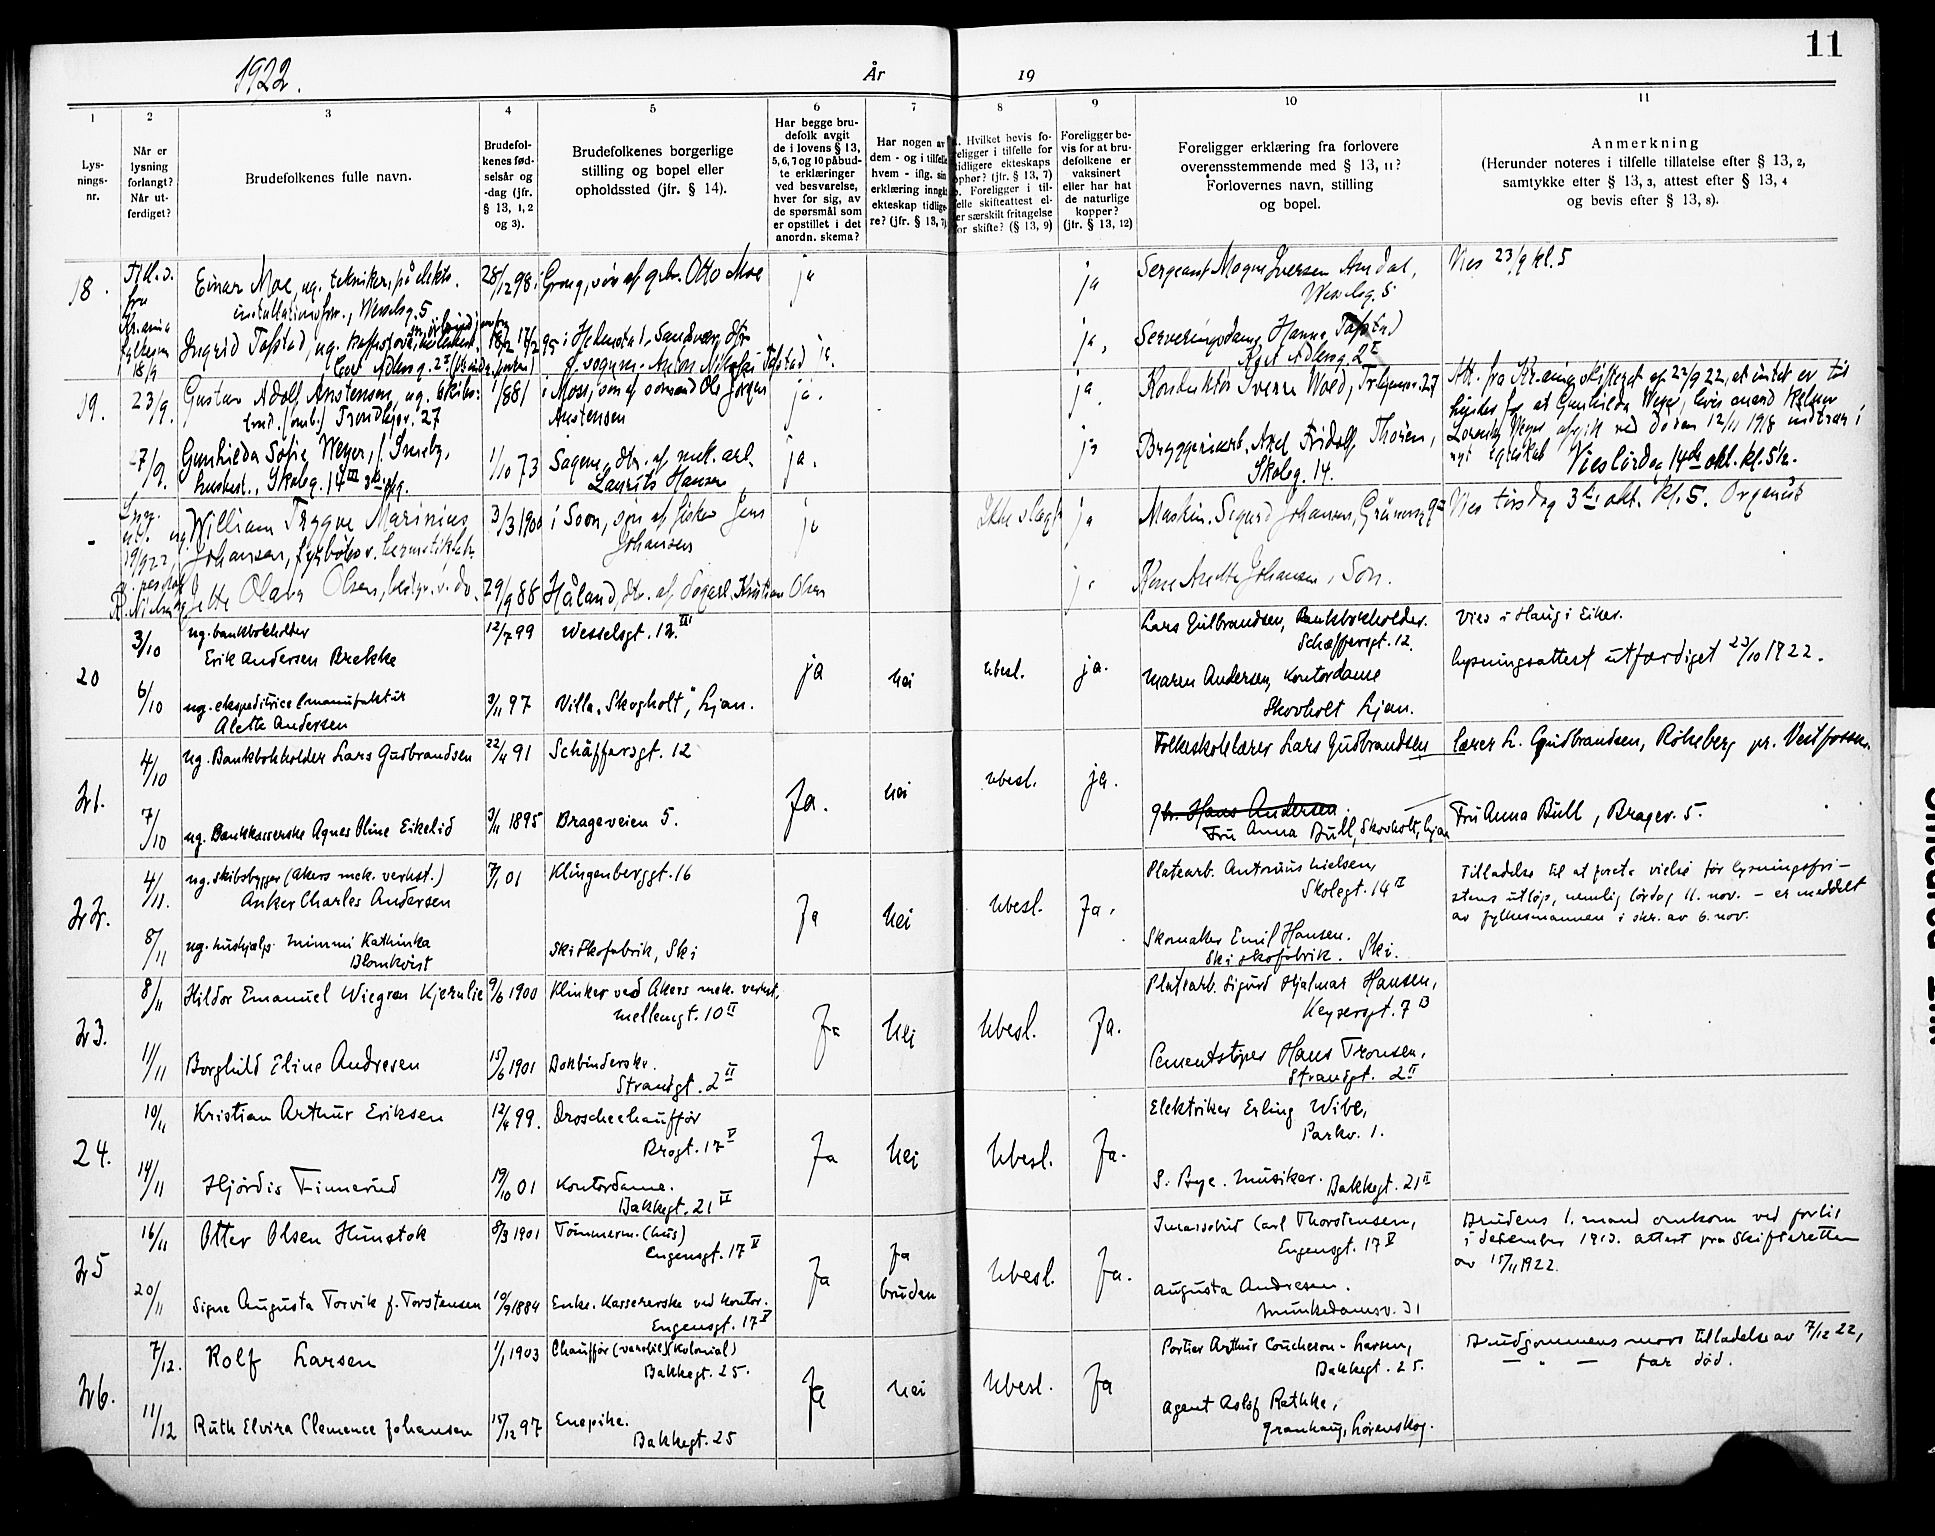 1922.
År
19
11
1
2
3
4
5
6
7
8
9
10
11
Lys-
nings-
nr.
Når er
lysning
forlangt?
Når ut-
ferdiget?
Brudefolkenes fulle navn.
Brudefol-
kenes fød-
selsår og
-dag (jfr.
§ 13, 1, 2
og 3).
Brudefolkenes borgerlige
stilling og bopel eller
opholdssted (jfr. § 14).
Har begge bru-
defolk avgit
de i lovens § 13,
5, 6, 7 og 10 påbud-
te erklæringer
ved besvarelse,
hver for sig, av
de spørsmål som
er opstillet i det
anordn. skema?
Har nogen av
dem - og i tilfelle
hvem - iflg. sin
erklæring inngåt
ekteskap tidlige-
re? (jfr. § 13, 7)
Hvilket bevis fo-
religger i tilfelle for
tidligere ekteskaps
ophør? (jfr. § 13, 7)
Foreligger i til-
felle skifteattest el-
ler særskilt fritagelse
for skifte? (§ 13, 9)
Foreligger be-
vis for at bru-
defolkene er
vaksinert
eller har hat
de naturlige
kopper?
(jfr. § 13, 12)
Foreligger erklæring fra forlovere
overensstemmende med § 13, 11?
Forlovernes navn, stilling
og bopel.
Anmerkning
(Herunder noteres i tilfelle tillatelse efter § 13, 2,
samtykke efter § 13, 3, attest efter § 13, 4
og bevis efter § 13, 8).
18.
fra
18/9
Einar Moe, ug. tekniker på elektr.
installationsforr., Wesselsg. 5
28/12 98
i Grong, søn af gbr. Otto Moe
ja
ja
Sergeant Magne Iversen Amdal,
Wesselsg. 5
Vies 23/9 kl. 5
Ingrid Tofstad, ug.
ja,
Serveringsdame Hanna Tofstad
19.
23/9.
Gustav Adolf Anstensen, ug. skibs-
Trondhjgr. 27
1/8 81
i Moss, søn af sømand Ole Jørgen
Anstensen
ja.
ja
Konduktør Sverre Wold, 27
Att. fra 22/9 22, at intet er til
hinder for at Gunhilda Weyer, hvis mand
ved døden 12/11 1918 indtræ i
nyt egteskab Vies lördag 14de okt. kl. 5½.
27/9.
Gunhilda Sofie Weyer, f.
Skoleg. 14 III
1/10 73
Sagene, dtr. af mek. arb.
Laurits Hansen
ja.
ja
Bryggeriarb. Axel Fridolf Thorén,
Skoleg. 14.
-
19/9 22
William Trygve Marinius
Johansen,
3/3 1900
i Soon, søn af fisker Jens
Johansen
ja
ja
Maskin. Sigurd Johansen,
Vies tirsdag 3die okt. kl. 5.
Jette Olava Olsen,
29/9 88
Håland, dtr. af Kristian Olsen
Johansen, Son.
20
3/10
ug. bankbokholder
Erik Andersen Brekke
12/7 99
Wesselsgt. 12. III
ja
nei
ubesl.
ja.
Lars Gulbrandsen, Bankbokholder.
Schæffersgt. 12.
Vies i Haug i Eiker.
6/10
ug. ekspeditrice i manufaktur
Alette Andersen
3/11 97
Villa "Skogholt", Ljan.
Maren Andersen, Kontordame
Skovholt Ljan.
Lysningsattest utfærdiget 23/10 1922.
21.
4/10
ug. Bankbokholder Lars Gudbrandsen
22/4 91
Schäffersgt. 12
Ja.
nei
ubesl.
ja.
Folkeskolelærer Lars Gudbrandsen
lærer L. Gudbrandsen, Rökeberg pr. Vestfossen.
7/10
ug. Bankkassererske Agnes Oline Eikelid
3/11 1895
Brageveien 5.
gbr. Hans Andersen.
Fru Anna Bull, Skovholt, Ljan
Fru Anna Bull, Bragev. 5.
22.
4/11.
ug. skibsbygger (Akers mek. verkst.)
Anker Charles Andersen
7/1 01
Klingenberggt. 16
Ja
Nei
Ubesl.
Ja.
Platearb. Antonius Nielsen,
Skolegt. 14 II
Tilladelse til at foreta vielse før lysningsfri-
stens utløp, nemlig lørdag 11. nov. - er meddelt
av fylkesmannen i skr. av 6. nov.
8/11
ug. hushjelp Mimmi Kathinka
Blomkvist
Ski Skofabrik, Ski
Skomaker Emil Hansen.
Ski skofabrik. Ski.
23.
8/11
Hildor Emanuel Wiegren Kjernlie
9/6 1900
Klinker ved Akers mek. verkst.
Mellemgt. 10 II
Ja
Nei
Ubesl.
Ja.
Platearb. Sigurd Hjalmar Hansen,
Keysersgt. 7 B
11/11
Borghild Eline Andresen
15/6 1901
Bokbinderske.
Strandgt. 2 II
Cementstøper Hans Tronsen,
Strandgt. 2 II
24.
10/11
Kristian Arthur Eriksen
12/4 99.
Droschechauffør
Brogt. 17 V
Ja
Nei
Ubesl.
Ja.
Elektriker Erling Wibe,
Parkv. 1.
14/11
Hjördis Finnerud
19/10 01
Kontordame.
Bakkegt. 21 II
S. Bye. Musiker. Bakkegt. 21 II
25
16/11
Otter Olsen Hunstok
8/3 1901
Tömmerm. (hus)
Engensgt. 17 V
Ja
Ja
bruden
Ubesl.
Ja.
Carl Thorstensen,
Engensgt. 17 V
Brudens 1. mand omkom ved forlis
i desember 1913. attest fra Skifteretten
av 15/11 1922.
20/11
Signe Augusta Torvik f. Torstensen
10/9 1884
Enke. Kassererske ved kontor.
Engensgt. 17 V
Augusta Andresen.
Munkedamsv. 31
26.
7/12.
Rolf Larsen
1/1 1903
Chauffør (Kolonial)
Bakkegt. 25.
Ja
Nei
Ubesl.
Ja
Portier Arthur Coucheron-Larsen,
Bakkegt. 25.
Brudgommens mors tilladelse av 7/12 22,
— " — far död.
11/12
Ruth Elvira Clemence Johansen
15/12 97
Enepike.
Bakkegt. 25
Agent Aslof Rathke,
Granhaug, Lørenskog.